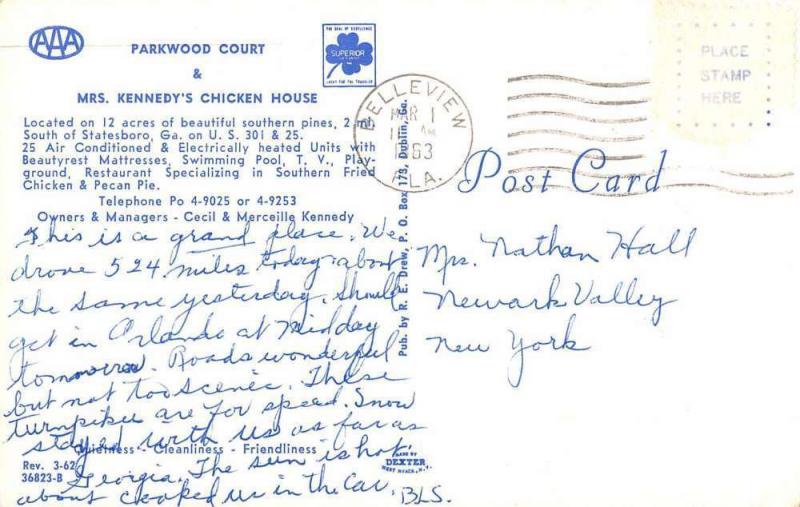 AAA
PARKWOOD COURT
&
MRS. KENNEDY'S CHICKEN HOUSE
THE SEAL OF EXCELLENCE
SUPERIOR
Located on 12 acres of beautiful southern pines, 2 mi.
South of Statesboro, Ga. on U. S. 301 & 25.
25 Air Conditioned & Electrically heated Units with
Beautyrest Mattresses, Swimming Pool, T. V., Play-
ground, Restaurant Specializing in Southern Fried
Chicken & Pecan Pie.
Telephone Po 4-9025 or 4-9253
Owners & Managers - Cecil & Merceille Kennedy
This is a grand place. We
drove 524 miles today. about
the same yesterday. Should
get in Orlando at Midday
tomorrow. Roads wonderful
but not too scenic. These
turnpikes are for speed. Snow
stayed with us as far as
Georgia. The sun is hot.
about cooked us in the car.
BLS.
Quietness - Cleanliness - Friendliness
Rev. 3-62
36823-B
Pub. by R. E. Drew, P. O. Box 173, Dublin, Ga.
MADE BY
DEXTER
WEST NYACK, N.Y.
BELLEVIEW
MAR 1
AM
1963
FLA.
PLACE
STAMP
HERE
Post Card
Mrs. Nathan Hall
Newark Valley
New York